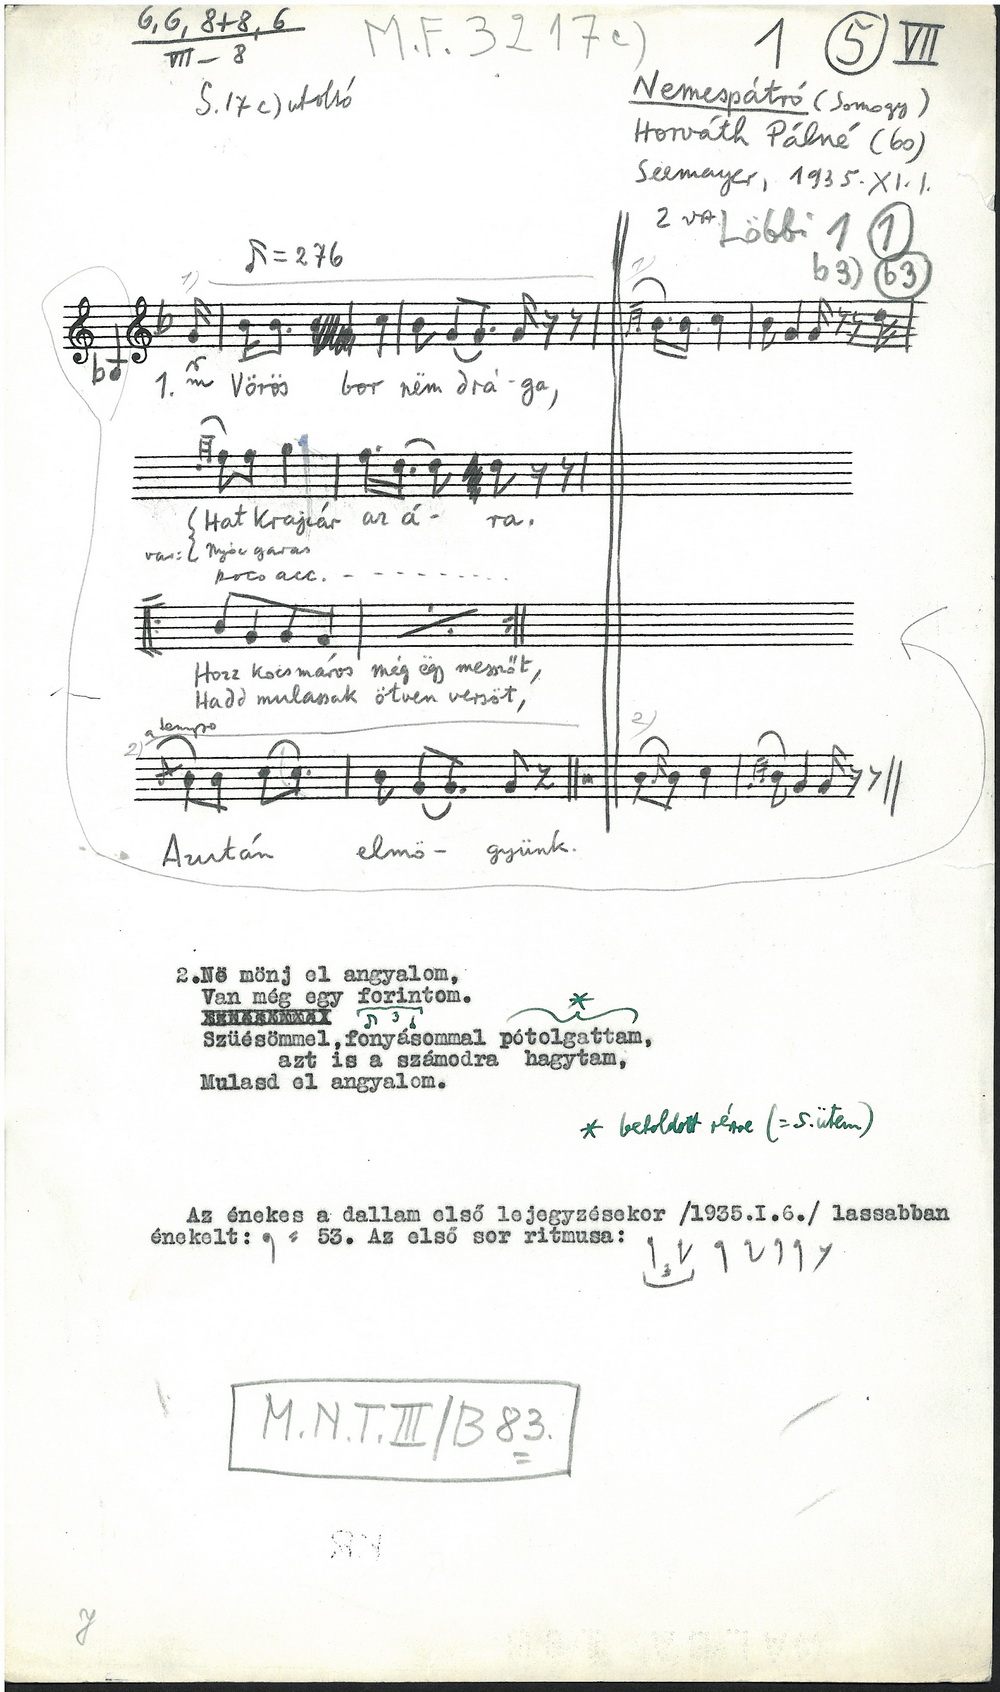 6, 6, 8+8, 6
VII – 8
M.F. 3217c)
1 5 VII
S.17c) utolsó
Nemespátró (Somogy)
Horváth Pálné (60)
Seemayer, 1935.XI.1.
2 vsz.
Többi 1 1
b3) b3
♪ = 276
1)
1. Vörös bor nëm drá-ga,
Hat krajcár az á- ra.
var: Nyóc garas
poco acc. - - - - - - - -
Hozz kocsmáros még ëgy messzőt,
Hadd mulassak ötven versöt,
a tempo
2)
2)
Azután elmö- gyünk.
2.Në mönj el angyalom,
Van még egy forintom.
3
*
Szüésömmel,fonyásommal pótolgattam,
azt is a számodra hagytam,
Mulasd el angyalom.
* betoldott része (=5.ütem)
Az énekes a dallam első lejegyzésekor /1935.I.6./ lassabban
énekelt: 53. Az első sor ritmusa:
3
M.N.T.III/B 83.